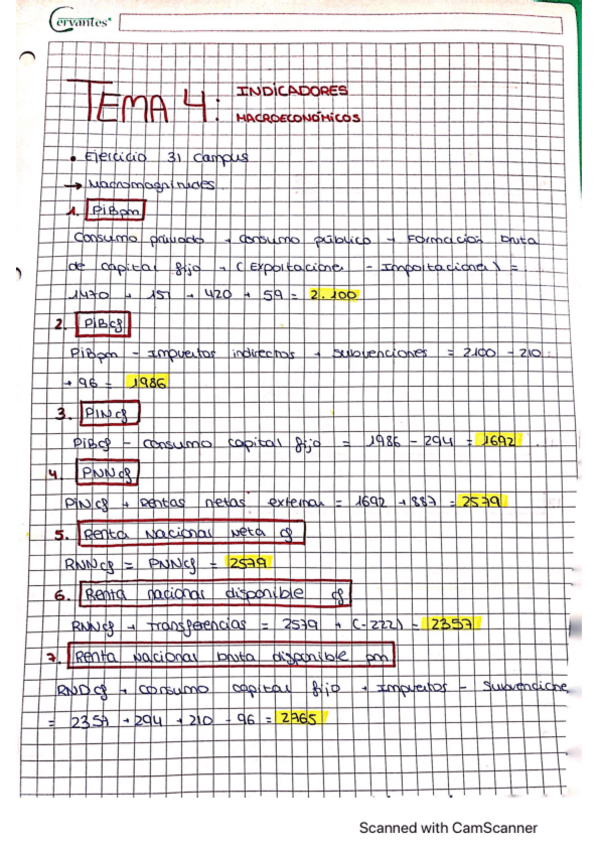 Cervantes
TEMA 4: INDICADORES
MACROECONÓMICOS
• Ejercicio 31 campus
→ Macromagnitudes
1. PIBpm
Consumo privado + consumo público + Formación bruta
de capital fijo + (Exportaciones - Importaciones) =
1470 + 151 + 420 + 59 = 2.100
2. PIBcf
PIBpm - Impuestos indirectos + subvenciones = 2100 - 210
+ 96 = 1986
3. PINcf
PIBcf - consumo capital fijo = 1986 - 294 = 1692
4. PNNcf
PINcf + Rentas netas externas = 1692 + 887 = 2579
5. Renta Nacional Neta cf
RNNcf = PNNcf = 2579
6. Renta nacional disponible cf
RNNcf + Transferencias = 2579 + (-222) = 2357
7. Renta Nacional bruta disponible pm
RNDcf + consumo capital fijo + Impuestos - Subvencione
= 2357 + 294 + 210 - 96 = 2765
Scanned with CamScanner